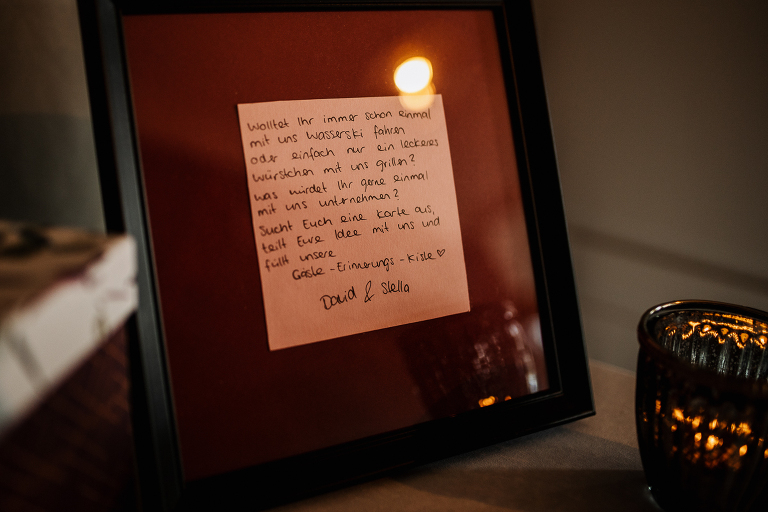 Wolltet Ihr immer schon einmal
mit uns Wasserski fahren
oder einfach nur ein leckeres
Würstchen mit uns grillen?
was würdet Ihr gerne einmal
mit uns unternehmen?
Sucht Euch eine Karte aus,
teilt Eure Idee mit uns und
füllt unsere
Gäste-Erinnerungs-Kiste ♡
David & Stella